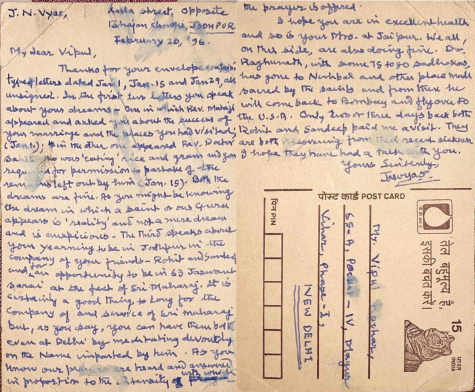 J. N. Vyas, Asila Street, Opposite
Bhajan Chowki, JODHPUR
February 20, '96.
My dear Vipul,
Thanks for your envelope
typed letters dated Jan. 1, Jan-15 and Jan 29, all
unsigned. In the first two letters you speak
about your dreams - One in which Rev. Maharaj
appeared and asked you about the success of
your marriage and the places you had visited,
(Jan. 1). In the other one appeared Rev. Doctor
Sahib. He was 'eating' rice and gram and you
for permission to partake of the
left out by him (Jan. 15). Both the
dreams are fine. As you might be knowing
the dream in which a saint or our Guru
appears is 'reality' and not a mere dream
and is auspicious - The third speaks about
your yearning to be in Jodhpur in the
company of your friends - Rohit and Sandeep
and for an opportunity to be in 63 Jaswant
Sarai at the feet of Sri Maharaj. It is
certainly a good thing to long for the
Company of and Service of Sri Maharaj
but, as you say, you can have them both
even at Delhi by meditating devoutly
on the Name imparted by him. As you
know our prayers are heard and answered
in proportion to the intensity with which
the prayer is offered.
I hope you are in excellent health
and so is your Mrs. at Jaipur. We all,
on this side, are also doing fine. Dr.
Raghunath, with some 75 to 80 Sadhakas,
has gone to and other places made
sacred by the saints and from there he
will come back to Bombay and fly over to
the U.S.A. Only two or three days back both
Rohit and Sandeep paid me a visit. They
are both recovering from their recent
I hope they have had a talk with you.
Yours Sincerely,
JNVyas
पोस्ट कार्ड POST CARD
पिन PIN
Mr. Vipul
55-A, Pocket-IV, Mayur
Vihar, Phase-I,
NEW DELHI
तेल बहुमूल्य है,
इसकी बचत करें।
15
भारत
INDIA